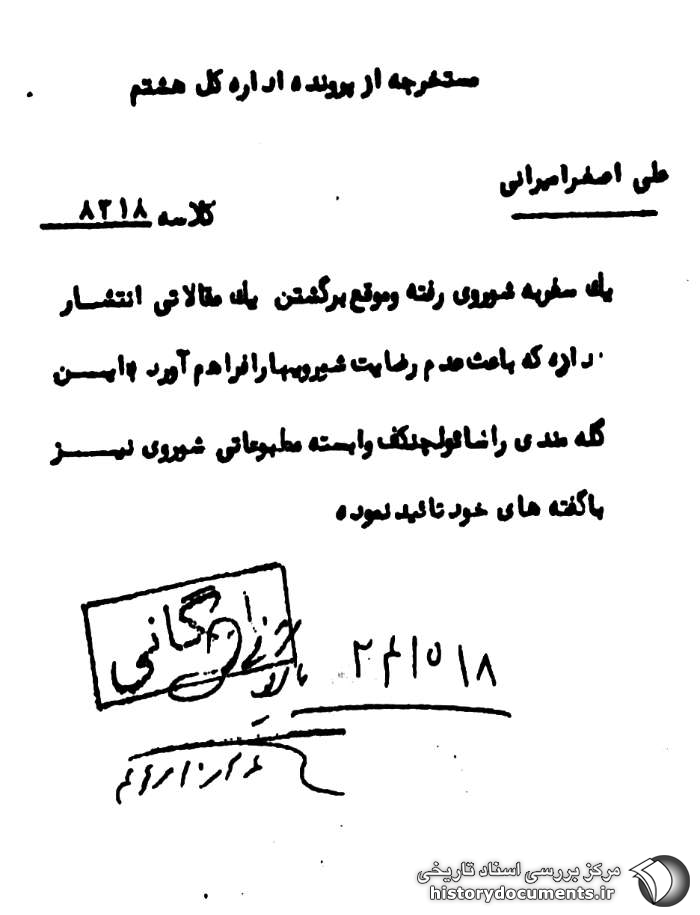 مستخرجه از پرونده اداره کل هشتم
علی اصغر امیرانی
کلاسه ۸۳۱۸
یك سفر به شوروی رفته وموقع برگشتن یك مقالاتی انتشار
داده که باعث عدم رضایت شورویها را فراهم آورد و این
گله مندی را ضائولچنکف وابسته مطبوعاتی شوروی نیز
با گفته های خود تائید نموده
بازرگانی
مرکز بررسی اسناد تاریخی
historydocuments.ir